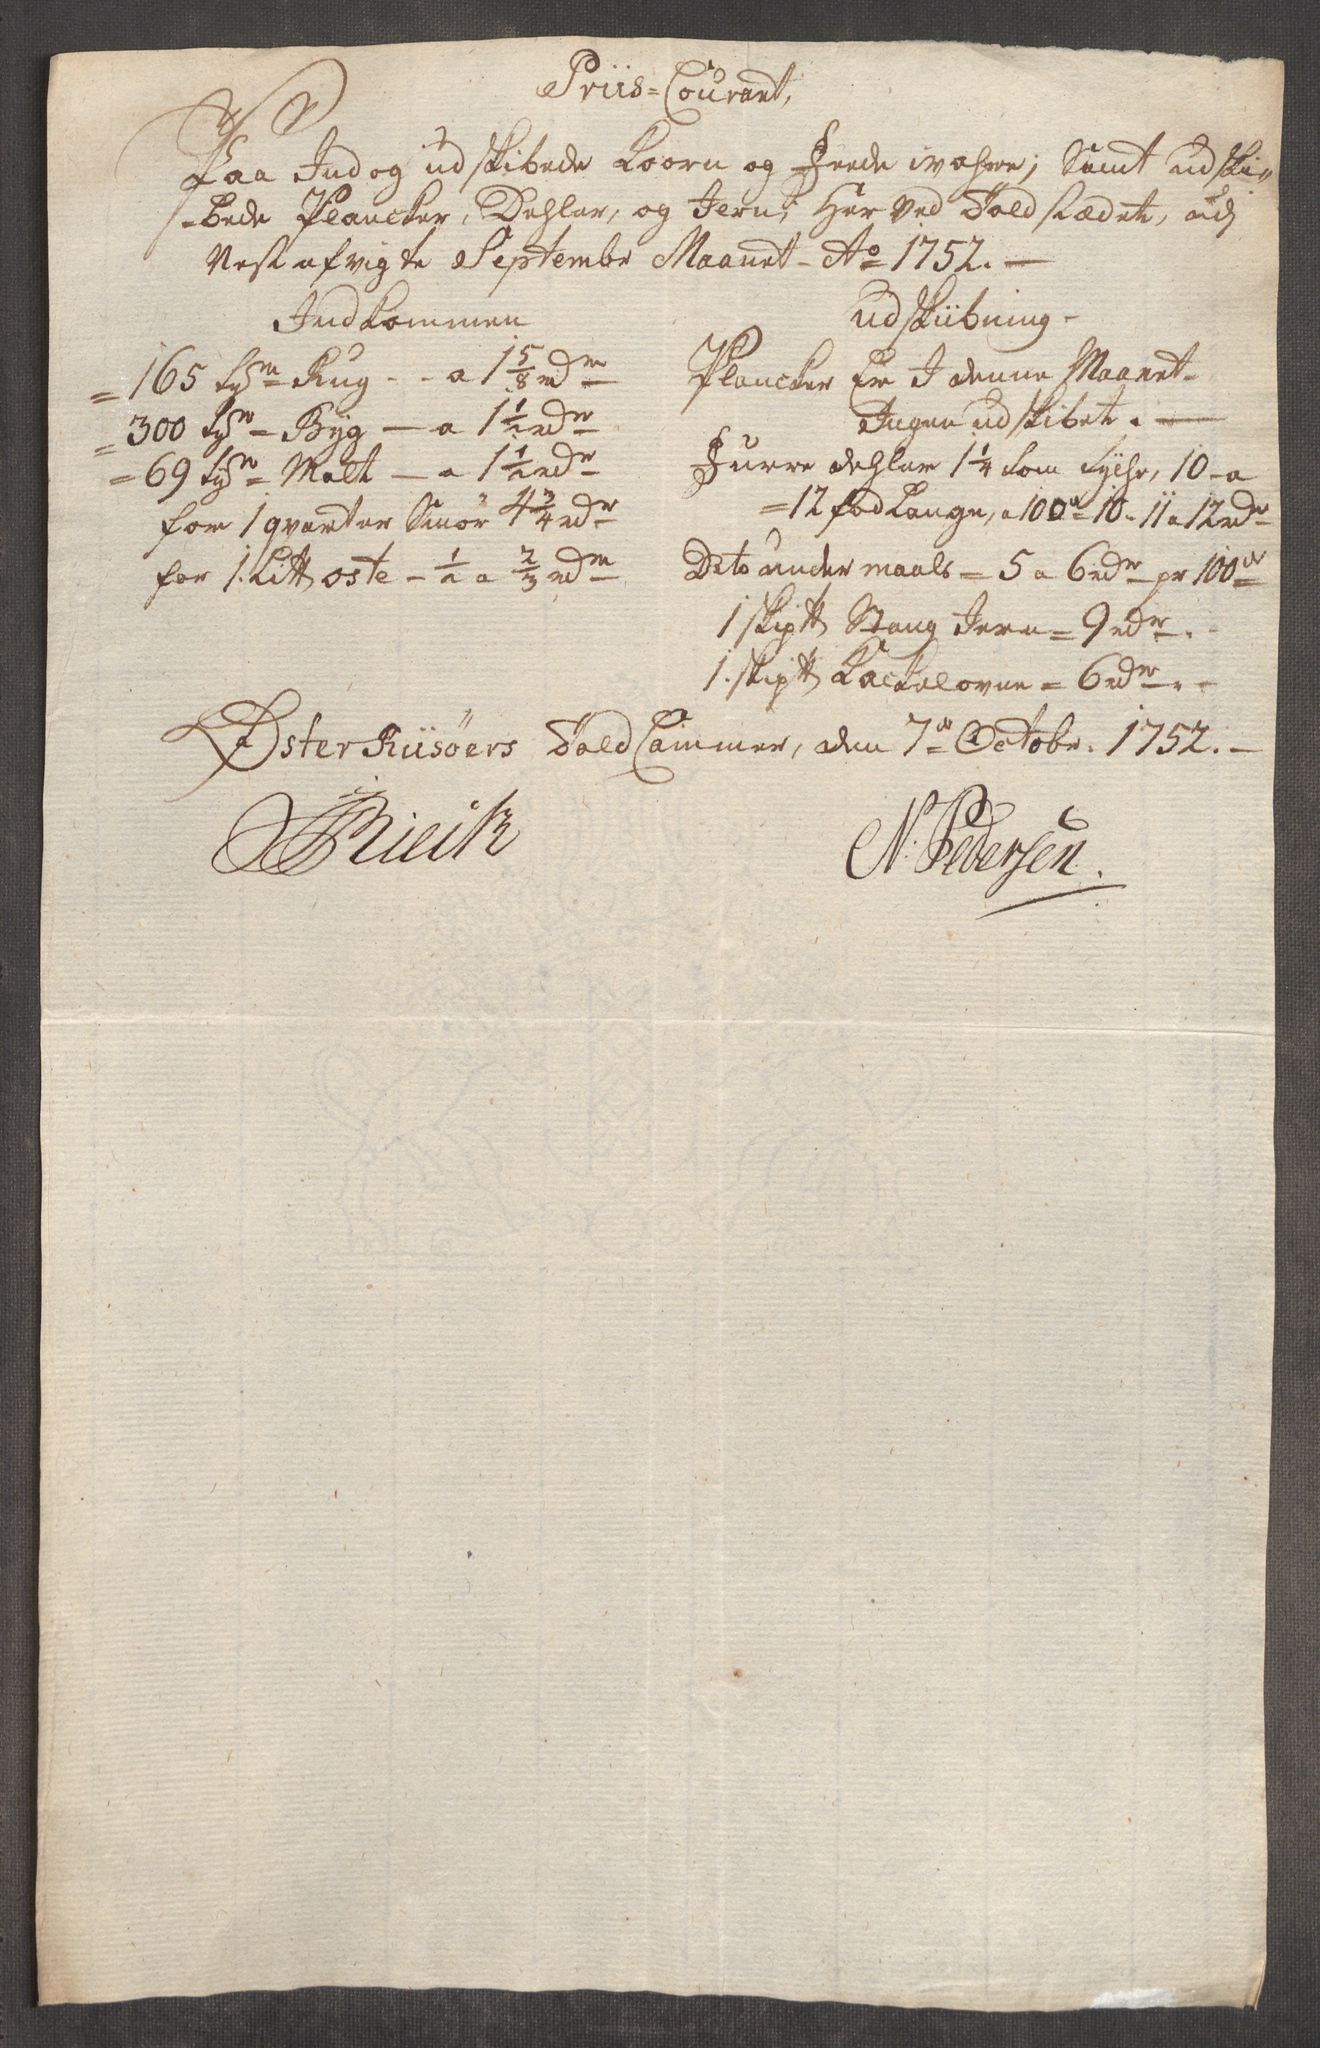 Priis=Courant,
Paa Ind og udskibede Koorn og Feede wahre; Samt udski„
„bede Plancker, Dehler, og Jern; Her ved Told stædet, udj
Nest afvigte Septembr Maanet – Ao 1752. –
Indkommen
= 165 tr Rug - - a 1 5/8 rdr
= 300 tr Byg — a 1 1/2 rdr
= 69 tr Malt — a 1 1/2 rdr
for 1 qvarter Smør 4 3/4 rdr
for 1. Litt oste – 1/2 a 2/3 rdr
udskiibning –
Plancker Er I denne Maanet
Ingen udskibet. —
Furre dehler 1 1/4 tom tyche, 10 – a
= 12 fod Lange, a 100de 10. 11 a 12 rdr
Dito under maals = 5 a 6 rdr pr 100de
1 skiptt Stang Jern = 9 rdr. -
1. skiptt Kackelovne = 6 rdr. -
Øster Riisøers Told Cammer, den 7de Octobr. 1752. –
N. Pedersen.